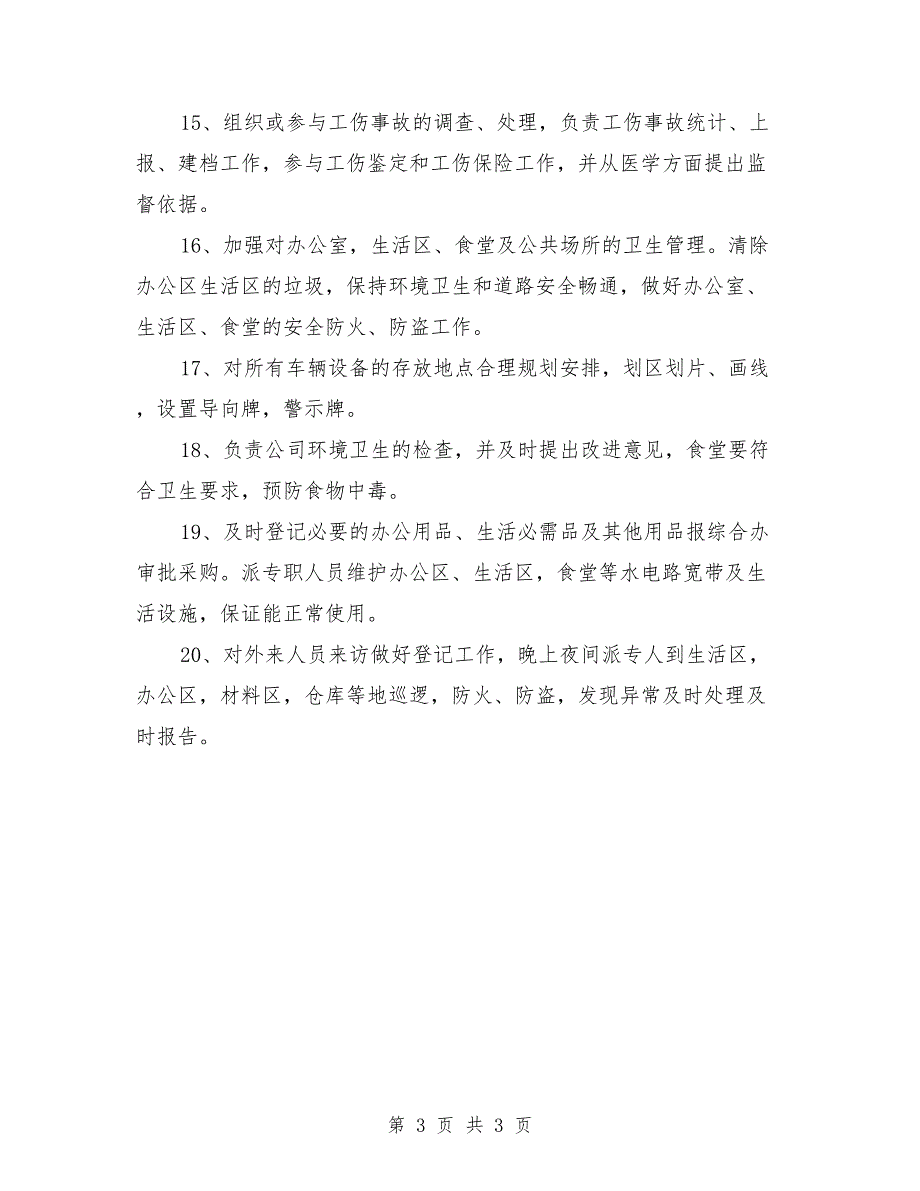 15、组织或参与工伤事故的调查、处理，负责工伤事故统计、上
报、建档工作，参与工伤鉴定和工伤保险工作，并从医学方面提出监
督依据。
16、加强对办公室，生活区、食堂及公共场所的卫生管理。清除
办公区生活区的垃圾，保持环境卫生和道路安全畅通，做好办公室、
生活区、食堂的安全防火、防盗工作。
17、对所有车辆设备的存放地点合理规划安排，划区划片、画线
，设置导向牌，警示牌。
18、负责公司环境卫生的检查，并及时提出改进意见，食堂要符
合卫生要求，预防食物中毒。
19、及时登记必要的办公用品、生活必需品及其他用品报综合办
审批采购。派专职人员维护办公区、生活区，食堂等水电路宽带及生
活设施，保证能正常使用。
20、对外来人员来访做好登记工作，晚上夜间派专人到生活区，
办公区，材料区，仓库等地巡逻，防火、防盗，发现异常及时处理及
时报告。
第 3 页 共 3 页